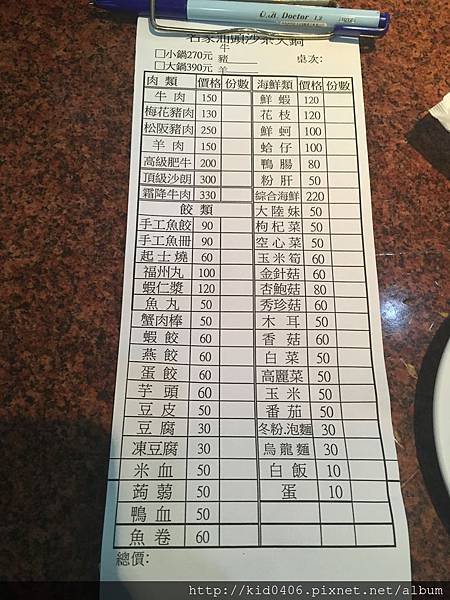 O.B. Doctor 1.2
名家汕頭沙茶火鍋
□小鍋270元 牛 桌次:
豬
□大鍋390元 羊
肉類 價格 份數 海鮮類 價格 份數
牛肉 150 鮮蝦 120
梅花豬肉 130 花枝 120
松阪豬肉 250 鮮蚵 100
羊肉 150 蛤仔 100
高級肥牛 200 鴨腸 80
頂級沙朗 300 粉肝 50
霜降牛肉 330 綜合海鮮 220
餃類 大陸妹 50
手工魚餃 90 枸杞菜 50
手工魚冊 90 空心菜 50
起士燒 60 玉米筍 60
福州丸 100 金針菇 60
蝦仁漿 120 杏鮑菇 80
魚丸 50 秀珍菇 60
蟹肉棒 50 木耳 50
蝦餃 60 香菇 60
燕餃 60 白菜 50
蛋餃 60 高麗菜 50
芋頭 60 玉米 50
豆皮 50 番茄 50
豆腐 30 冬粉.泡麵 30
凍豆腐 30 烏龍麵 30
米血 50 白飯 10
蒟蒻 50 蛋 10
鴨血 50
魚卷 60
總價:
http://kid0406.pixnet.net/album